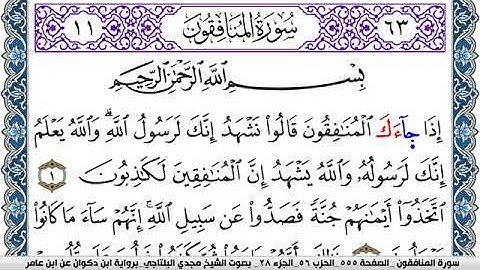 ٦٣ سُورَةُ المُنَافِقُونَ ١١
بِسْمِ اللَّهِ الرَّحْمَٰنِ الرَّحِيمِ
إِذَا جَآءَكَ الْمُنَٰفِقُونَ قَالُوا۟ نَشْهَدُ إِنَّكَ لَرَسُولُ اللَّهِ ۗ وَاللَّهُ يَعْلَمُ
إِنَّكَ لَرَسُولُهُۥ وَاللَّهُ يَشْهَدُ إِنَّ الْمُنَٰفِقِينَ لَكَٰذِبُونَ ١
اتَّخَذُوٓا۟ أَيْمَٰنَهُمْ جُنَّةً فَصَدُّوا۟ عَن سَبِيلِ اللَّهِ ۚ إِنَّهُمْ سَآءَ مَا كَانُوا۟
سورة المنافقون _الصفحة ٥٥٥_ الحزب ٥٦_ الجزء ٢٨_ بصوت الشيخ مجدي البلتاجي_برواية ابن ذكوان عن ابن عامر